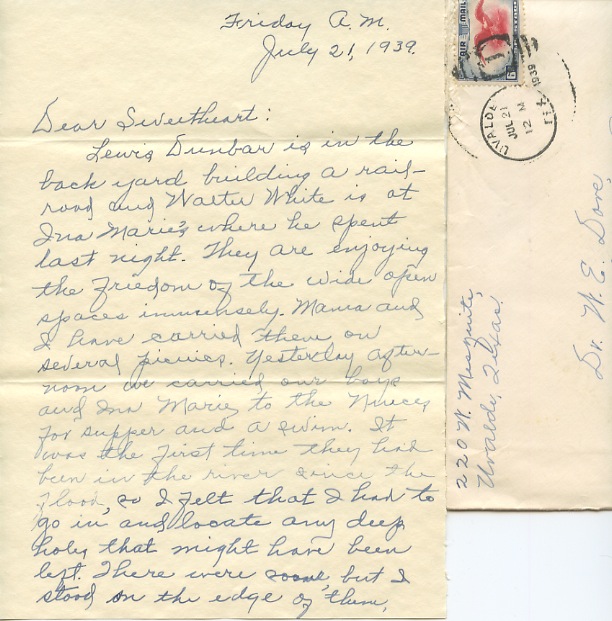 Friday A.M.
July 21, 1939.
Dear Sweetheart:
Lewis Dunbar is in the
back yard building a rail-
road and Walter White is at
Ina Marie's where he spent
last night. They are enjoying
the friedom of the wide open
spaces immensely. Mama and
I have carried them on
several picnics. Yesterday after-
noon we carried our boys
and Ina Marie to the Nueces
for supper and a swim. It
was the first time they had
been in the river since the
flood, so I felt that I had to
go in and locate any deep
holes that might have been
left. There were some, but I
stood on the edge of them,
AIR MAIL
6
UVALDE
JUL 21
12 M
1939
TEX.
220 N. Mesquite,
Uvalde, Texas.
Dr. W. E. Dove,